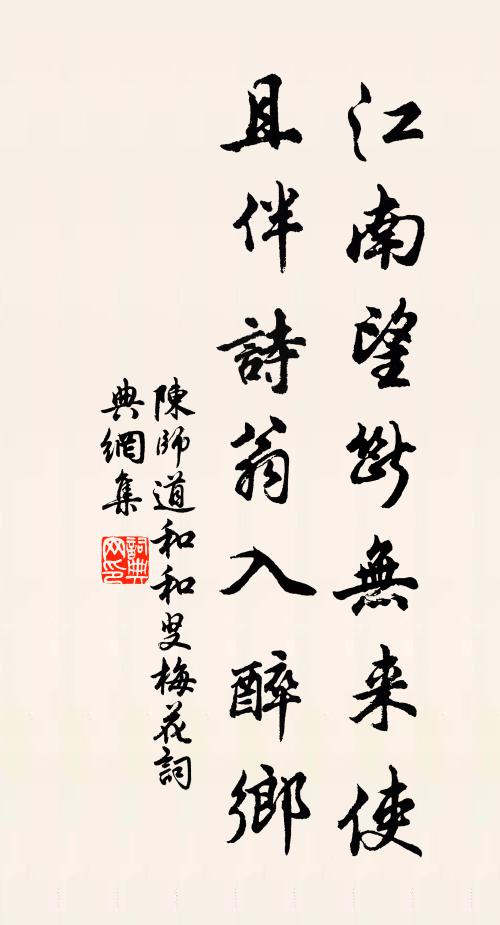 江南望斷無来使
且伴詩翁入醉鄉
陳師道和和叟梅花詞
典網集
詞典
网印